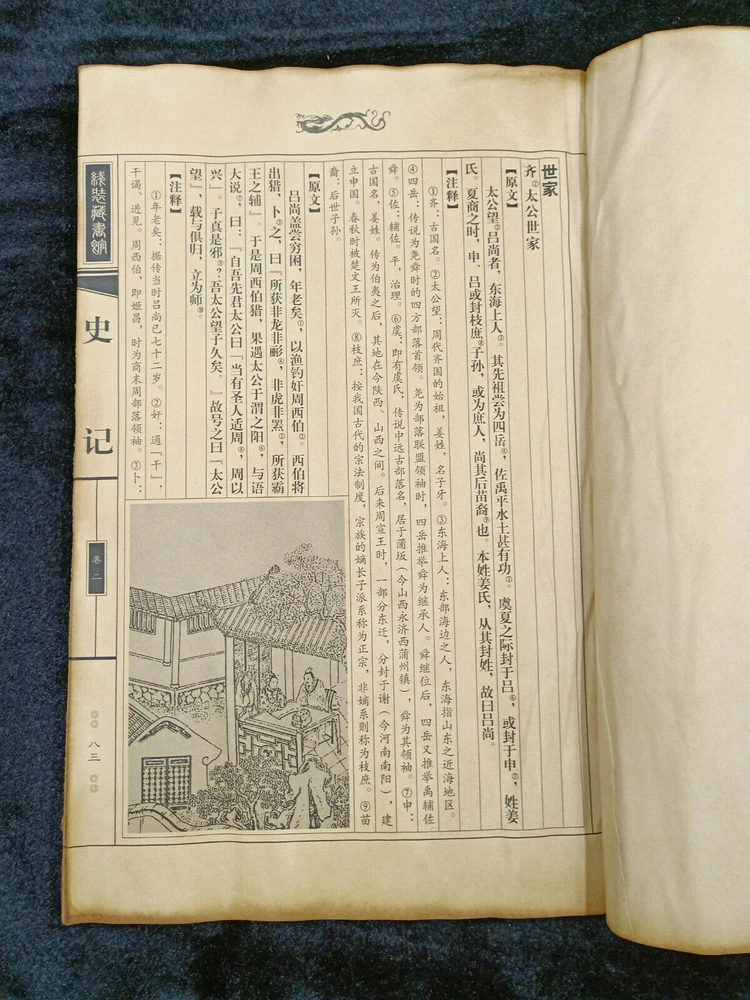 世家
齐①太公世家
【原文】
太公望②吕尚者，东海上人③。其先祖尝为四岳④，佐禹平水土甚有功⑤。虞夏之际封于吕⑥，或封于申⑦，姓姜
氏。夏商之时，申、吕或封枝庶⑧子孙，或为庶人，尚其后苗裔⑨也。本姓姜氏，从其封姓，故曰吕尚。
【注释】
①齐：古国名。②太公望：周代齐国的始祖，姜姓，名子牙。③东海上人：东部海边之人，东海指山东之近海地区。
④四岳：传说为尧舜时的四方部落首领。尧为部落联盟领袖时，四岳推举舜为继承人。舜继位后，四岳又推举禹辅佐
舜。⑤佐：辅佐。平，治理。⑥虞：即有虞氏，传说中远古部落名，居于蒲坂（今山西永济西蒲州镇），舜为其领袖。⑦申：
古国名，姜姓。传为伯夷之后，其地在今陕西、山西之间。后来周宣王时，一部分东迁，分封于谢（今河南南阳），建
立申国。春秋时被楚文王所灭。⑧枝庶：按我国古代的宗法制度，宗族的嫡长子派系称为正宗，非嫡系则称为枝庶。⑨苗
裔：后世子孙。
【原文】
吕尚盖尝穷困，年老矣①，以渔钓奸周西伯②。西伯将
出猎，卜③之，曰「所获非龙非彲④，非虎非罴⑤，所获霸
王之辅」。于是周西伯猎，果遇太公于渭之阳⑥，与语
大说⑦，曰：「自吾先君太公曰『当有圣人适周⑧，周以
兴』。子真是邪⑨？吾太公望子久矣。』故号之曰「太公
望」，载与俱归，立为师⑩。
【注释】
①年老矣：据传当时吕尚已七十二岁。②奸：通「干」，
干谒、进见。周西伯，即姬昌，时为商末周部落领袖。③卜：
线装藏书馆
史记
卷二
八三